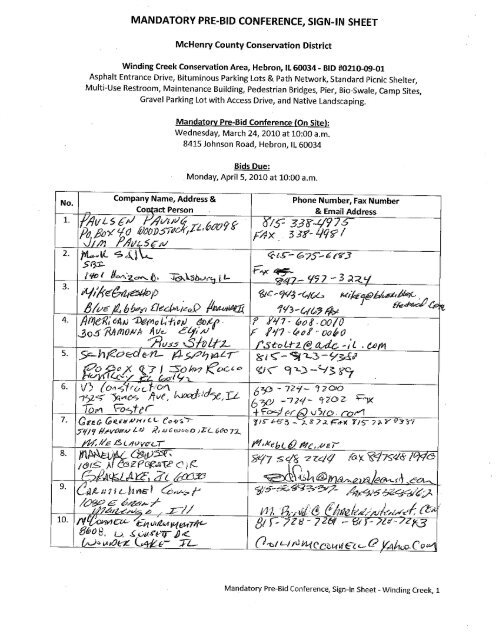 MANDATORY PRE-BID CONFERENCE, SIGN-IN SHEET
McHenry County Conservation District
Winding Creek Conservation Area, Hebron, IL 60034 - BID #0210-09-01
Asphalt Entrance Drive, Bituminous Parking Lots & Path Network, Standard Picnic Shelter,
Multi-Use Restroom, Maintenance Building, Pedestrian Bridges, Pier, Bio-Swale, Camp Sites,
Gravel Parking Lot with Access Drive, and Native Landscaping.
Mandatory Pre-Bid Conference (On Site):
Wednesday, March 24, 2010 at 10:00 a.m.
8415 Johnson Road, Hebron, IL 60034
Bids Due:
Monday, April 5, 2010 at 10:00 a.m.
No. Company Name, Address & Contact Person Phone Number, Fax Number & Email Address
1. PAULSEN PAVING 815-338-4975
PO, BOX 40 WOODSTOCK, IL. 60098 FAX 338-4981
JIM PAULSEN
2. Mark 815-675-6183
SBI Fax
1401 Horizon D. Johnsburg IL 847-497-3224
3. Mike Grieshop 815-943-
Blue Ribbon Electrical Harvard 943- Fax
4. AMERICAN Demolition CORP. P 847-608-0010
305 RAMONA AVE ELGIN F 847-608-0060
Russ Stoltz rstoltz@adc-il.com
5. Schroeder ASPHALT 815-923-4358
PO Box 831 John Rocco 815 923-4389
Huntley IL 60142
6. V3 Construction 630-724-9200
7325 Janes Ave, Woodridge, IL 630-724-9202 Fx
Tom Foster tfoster@v3co.com
7. GREG GREENHILL CONST 815 653-2872 Fax 815 728 9339
5919 HAYDEN LN RINGWOOD, IL 60072
MIKE BLAUVELT MIKEBL@MC.NET
8. MANEVAL CONST. 847 548 2244 Fax 847 548 1990
1015 N CORPORATE CIR @manevalconst.com
GRAYSLAKE, IL 60030
9. CARMICHAEL Const
1080 E Grant
MARENGO, Ill M.Bird@Charterinternet.com
10. McConnell ENVIRONMENTAL 815-728-7201 - 815-728-7243
8608 W SUNSET DR
WONDER LAKE IL COLINMCCONNELL@Yahoo.Com
Mandatory Pre-Bid Conference, Sign-In Sheet - Winding Creek, 1